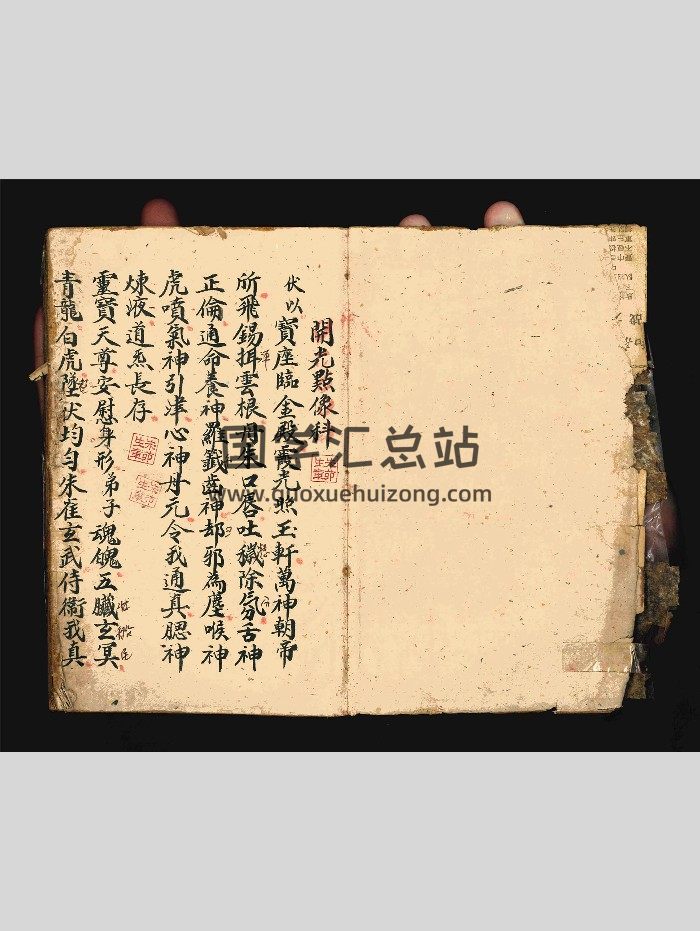 開光點像科
伏以
寶座臨金殿霞光照玉軒萬神朝帝
所飛錫揖雲根丹朱口唇吐穢除氛舌神
正倫通命養神羅籤齒神却邪為塵喉神
虎噴氣神引津心神丹元令我通真腮神
煉液道炁長存
靈寶天尊安慰身形弟子魂魄五臟玄冥
青龍白虎墜伏均勻朱雀玄武侍衛我真
国学汇总站
www.guoxuehuizong.com